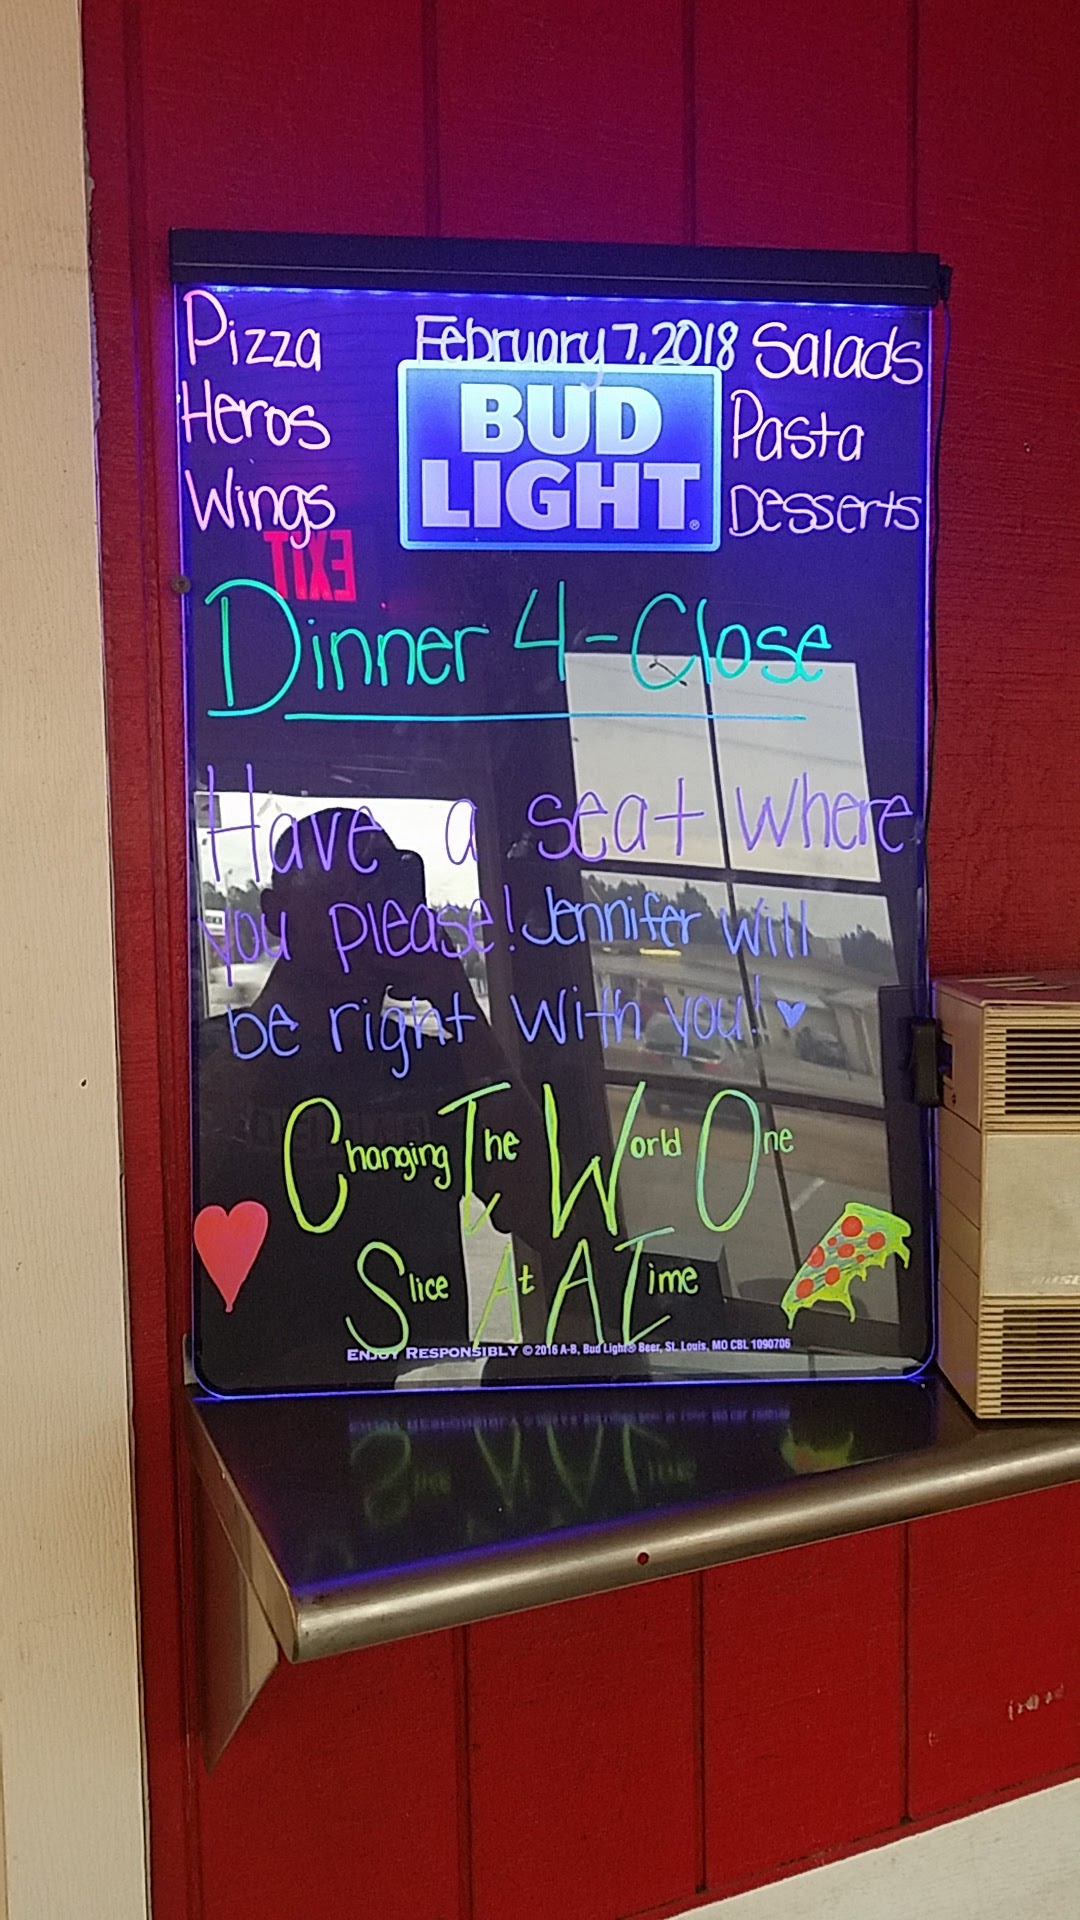 Pizza
February 7, 2018
Salads
Heros
BUD
Pasta
Wings
LIGHT
Desserts
EXIT
Dinner 4-Close
Have a seat where
you please! Jennifer will
be right with you!
Changing The World One
Slice At A Time
ENJOY RESPONSIBLY © 2016 A-B, Bud Light® Beer, St. Louis, MO CBL 1090706